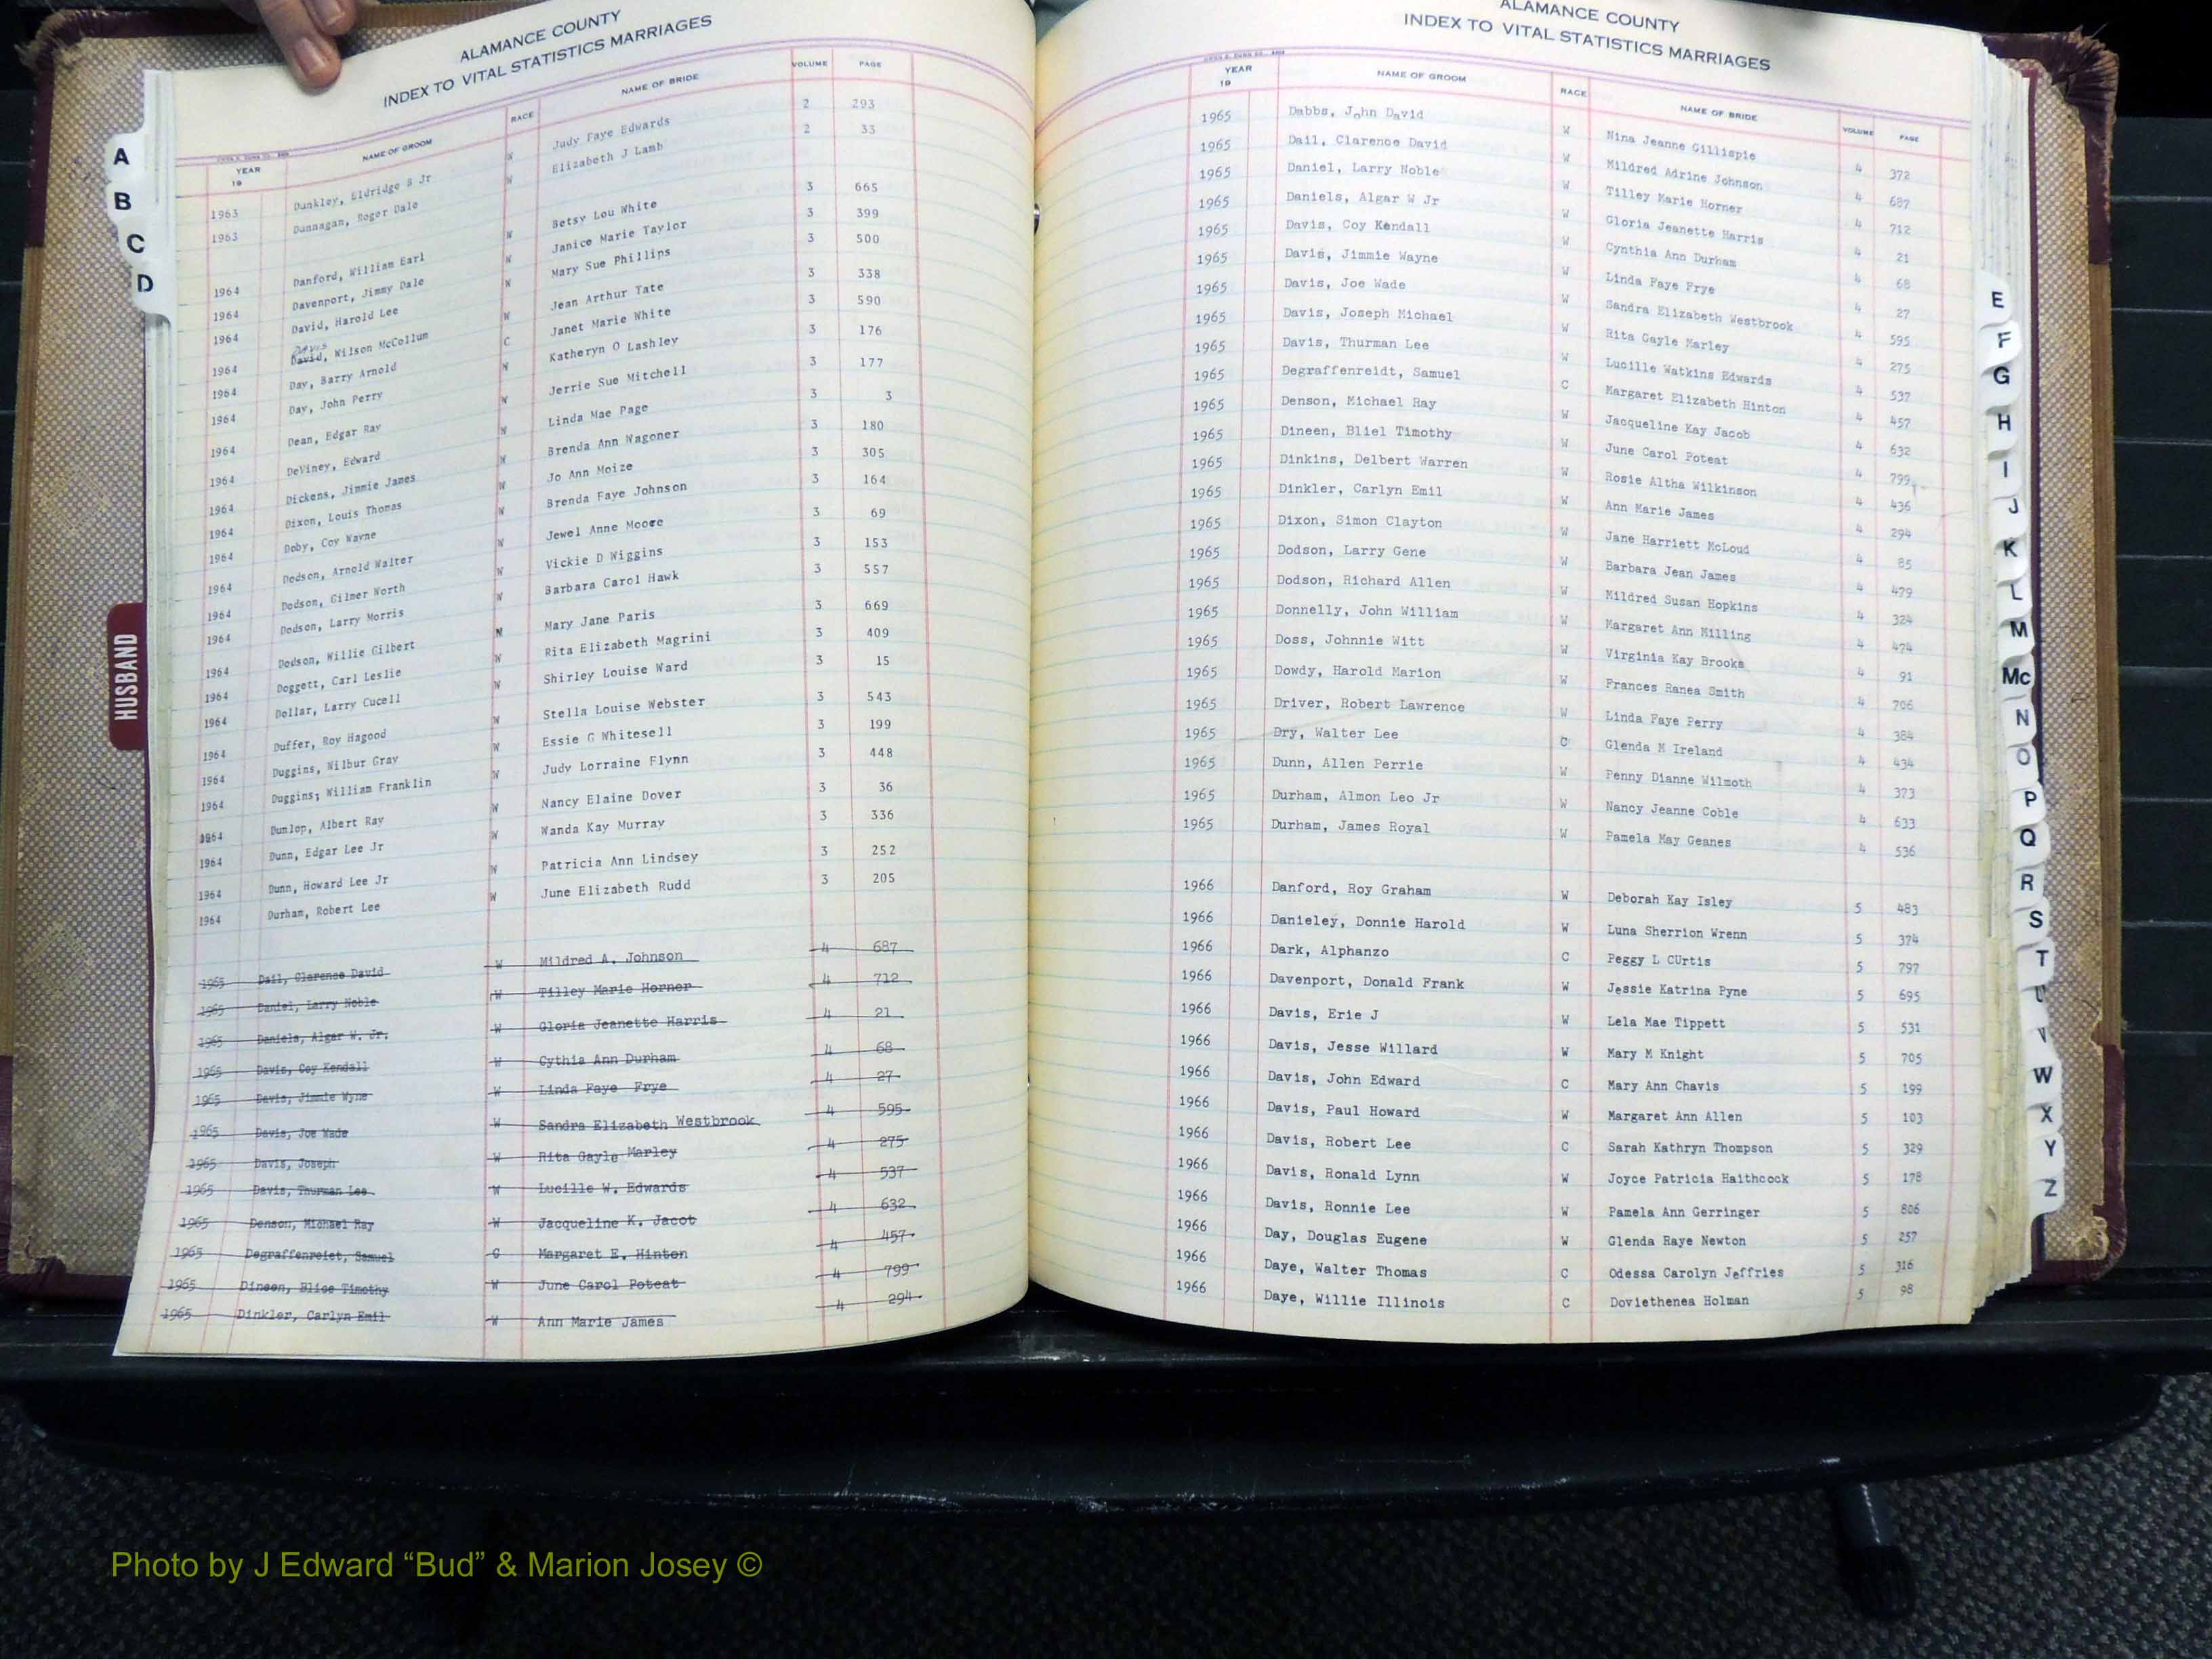 ALAMANCE COUNTY
INDEX TO VITAL STATISTICS MARRIAGES
YEAR 19 NAME OF GROOM RACE NAME OF BRIDE VOLUME PAGE
1963 Dunkley, Eldridge S Jr W Judy Faye Edwards 2 293
1963 Dunnagan, Roger Dale W Elizabeth J Lamb 2 33
1964 Danford, William Earl W Betsy Lou White 3 665
1964 Davenport, Jimmy Dale W Janice Marie Taylor 3 399
1964 David, Harold Lee W Mary Sue Phillips 3 500
Davis
1964 David, Wilson McCollum W Jean Arthur Tate 3 338
1964 Day, Barry Arnold C Janet Marie White 3 590
1964 Day, John Perry W Katheryn O Lashley 3 176
1964 Dean, Edgar Ray W Jerrie Sue Mitchell 3 177
1964 DeViney, Edward W Linda Mae Page 3 3
1964 Dickens, Jimmie James W Brenda Ann Wagoner 3 180
1964 Dixon, Louis Thomas W Jo Ann Moize 3 305
1964 Doby, Coy Wayne W Brenda Faye Johnson 3 164
1964 Dodson, Arnold Walter W Jewel Anne Moore 3 69
1964 Dodson, Gilmer Worth W Vickie D Wiggins 3 153
1964 Dodson, Larry Morris W Barbara Carol Hawk 3 557
1964 Dodson, Willie Gilbert W Mary Jane Paris 3 669
1964 Doggett, Carl Leslie W Rita Elizabeth Magrini 3 409
1964 Dollar, Larry Cucell W Shirley Louise Ward 3 15
1964 Duffer, Roy Hagood W Stella Louise Webster 3 543
1964 Duggins, Wilbur Gray W Essie G Whitesell 3 199
1964 Duggins; William Franklin W Judy Lorraine Flynn 3 448
1964 Dunlop, Albert Ray W Nancy Elaine Dover 3 36
1964 Dunn, Edgar Lee Jr W Wanda Kay Murray 3 336
1964 Dunn, Howard Lee Jr W Patricia Ann Lindsey 3 252
1964 Durham, Robert Lee W June Elizabeth Rudd 3 205
1965 Dail, Clarence David W Mildred A. Johnson 4 687
1965 Daniel, Larry Noble W Tilley Marie Horner 4 712
1965 Daniels, Algar W. Jr. W Gloria Jeanette Harris 4 21
1965 Davis, Coy Kendall W Cythia Ann Durham 4 68
1965 Davis, Jimmie Wyne W Linda Faye Frye 4 27
1965 Davis, Joe Wade W Sandra Elizabeth Westbrook 4 595
1965 Davis, Joseph W Rita Gayle Marley 4 275
1965 Davis, Thurman Lee W Lucille W. Edwards 4 537
1965 Denson, Michael Ray W Jacqueline K. Jacot 4 632
1965 Degraffenreiet, Samuel C Margaret E. Hinton 4 457
1965 Dineen, Blise Timothy W June Carol Poteat 4 799
1965 Dinkler, Carlyn Emil W Ann Marie James 4 294
A
B
C
D
HUSBAND
ALAMANCE COUNTY
INDEX TO VITAL STATISTICS MARRIAGES
YEAR 19 NAME OF GROOM RACE NAME OF BRIDE VOLUME PAGE
1965 Dabbs, John David W Nina Jeanne Gillispie 4 372
1965 Dail, Clarence David W Mildred Adrine Johnson 4 687
1965 Daniel, Larry Noble W Tilley Marie Horner 4 712
1965 Daniels, Algar W Jr W Gloria Jeanette Harris 4 21
1965 Davis, Coy Kendall W Cynthia Ann Durham 4 68
1965 Davis, Jimmie Wayne W Linda Faye Frye 4 27
1965 Davis, Joe Wade W Sandra Elizabeth Westbrook 4 595
1965 Davis, Joseph Michael W Rita Gayle Marley 4 275
1965 Davis, Thurman Lee W Lucille Watkins Edwards 4 537
1965 Degraffenreidt, Samuel C Margaret Elizabeth Hinton 4 457
1965 Denson, Michael Ray W Jacqueline Kay Jacob 4 632
1965 Dineen, Bliel Timothy W June Carol Poteat 4 799
1965 Dinkins, Delbert Warren W Rosie Altha Wilkinson 4 436
1965 Dinkler, Carlyn Emil W Ann Marie James 4 294
1965 Dixon, Simon Clayton W Jane Harriett McLoud 4 85
1965 Dodson, Larry Gene W Barbara Jean James 4 479
1965 Dodson, Richard Allen W Mildred Susan Hopkins 4 324
1965 Donnelly, John William W Margaret Ann Milling 4 474
1965 Doss, Johnnie Witt W Virginia Kay Brooks 4 91
1965 Dowdy, Harold Marion W Frances Ranea Smith 4 706
1965 Driver, Robert Lawrence W Linda Faye Perry 4 384
1965 Dry, Walter Lee C Glenda M Ireland 4 434
1965 Dunn, Allen Perrie W Penny Dianne Wilmoth 4 373
1965 Durham, Almon Leo Jr W Nancy Jeanne Coble 4 633
1965 Durham, James Royal W Pamela May Geanes 4 536
1966 Danford, Roy Graham W Deborah Kay Isley 5 483
1966 Danieley, Donnie Harold W Luna Sherrion Wrenn 5 374
1966 Dark, Alphanzo C Peggy L CUrtis 5 797
1966 Davenport, Donald Frank W Jessie Katrina Pyne 5 695
1966 Davis, Erie J W Lela Mae Tippett 5 531
1966 Davis, Jesse Willard W Mary M Knight 5 705
1966 Davis, John Edward C Mary Ann Chavis 5 199
1966 Davis, Paul Howard W Margaret Ann Allen 5 103
1966 Davis, Robert Lee C Sarah Kathryn Thompson 5 329
1966 Davis, Ronald Lynn W Joyce Patricia Haithcock 5 178
1966 Davis, Ronnie Lee W Pamela Ann Gerringer 5 806
1966 Day, Douglas Eugene W Glenda Raye Newton 5 257
1966 Daye, Walter Thomas C Odessa Carolyn Jeffries 5 316
1966 Daye, Willie Illinois C Doviethenea Holman 5 98
E
F
G
H
I
J
K
L
M
Mc
N
O
P
Q
R
S
T
U
V
W
X
Y
Z
Photo by J Edward “Bud” & Marion Josey ©